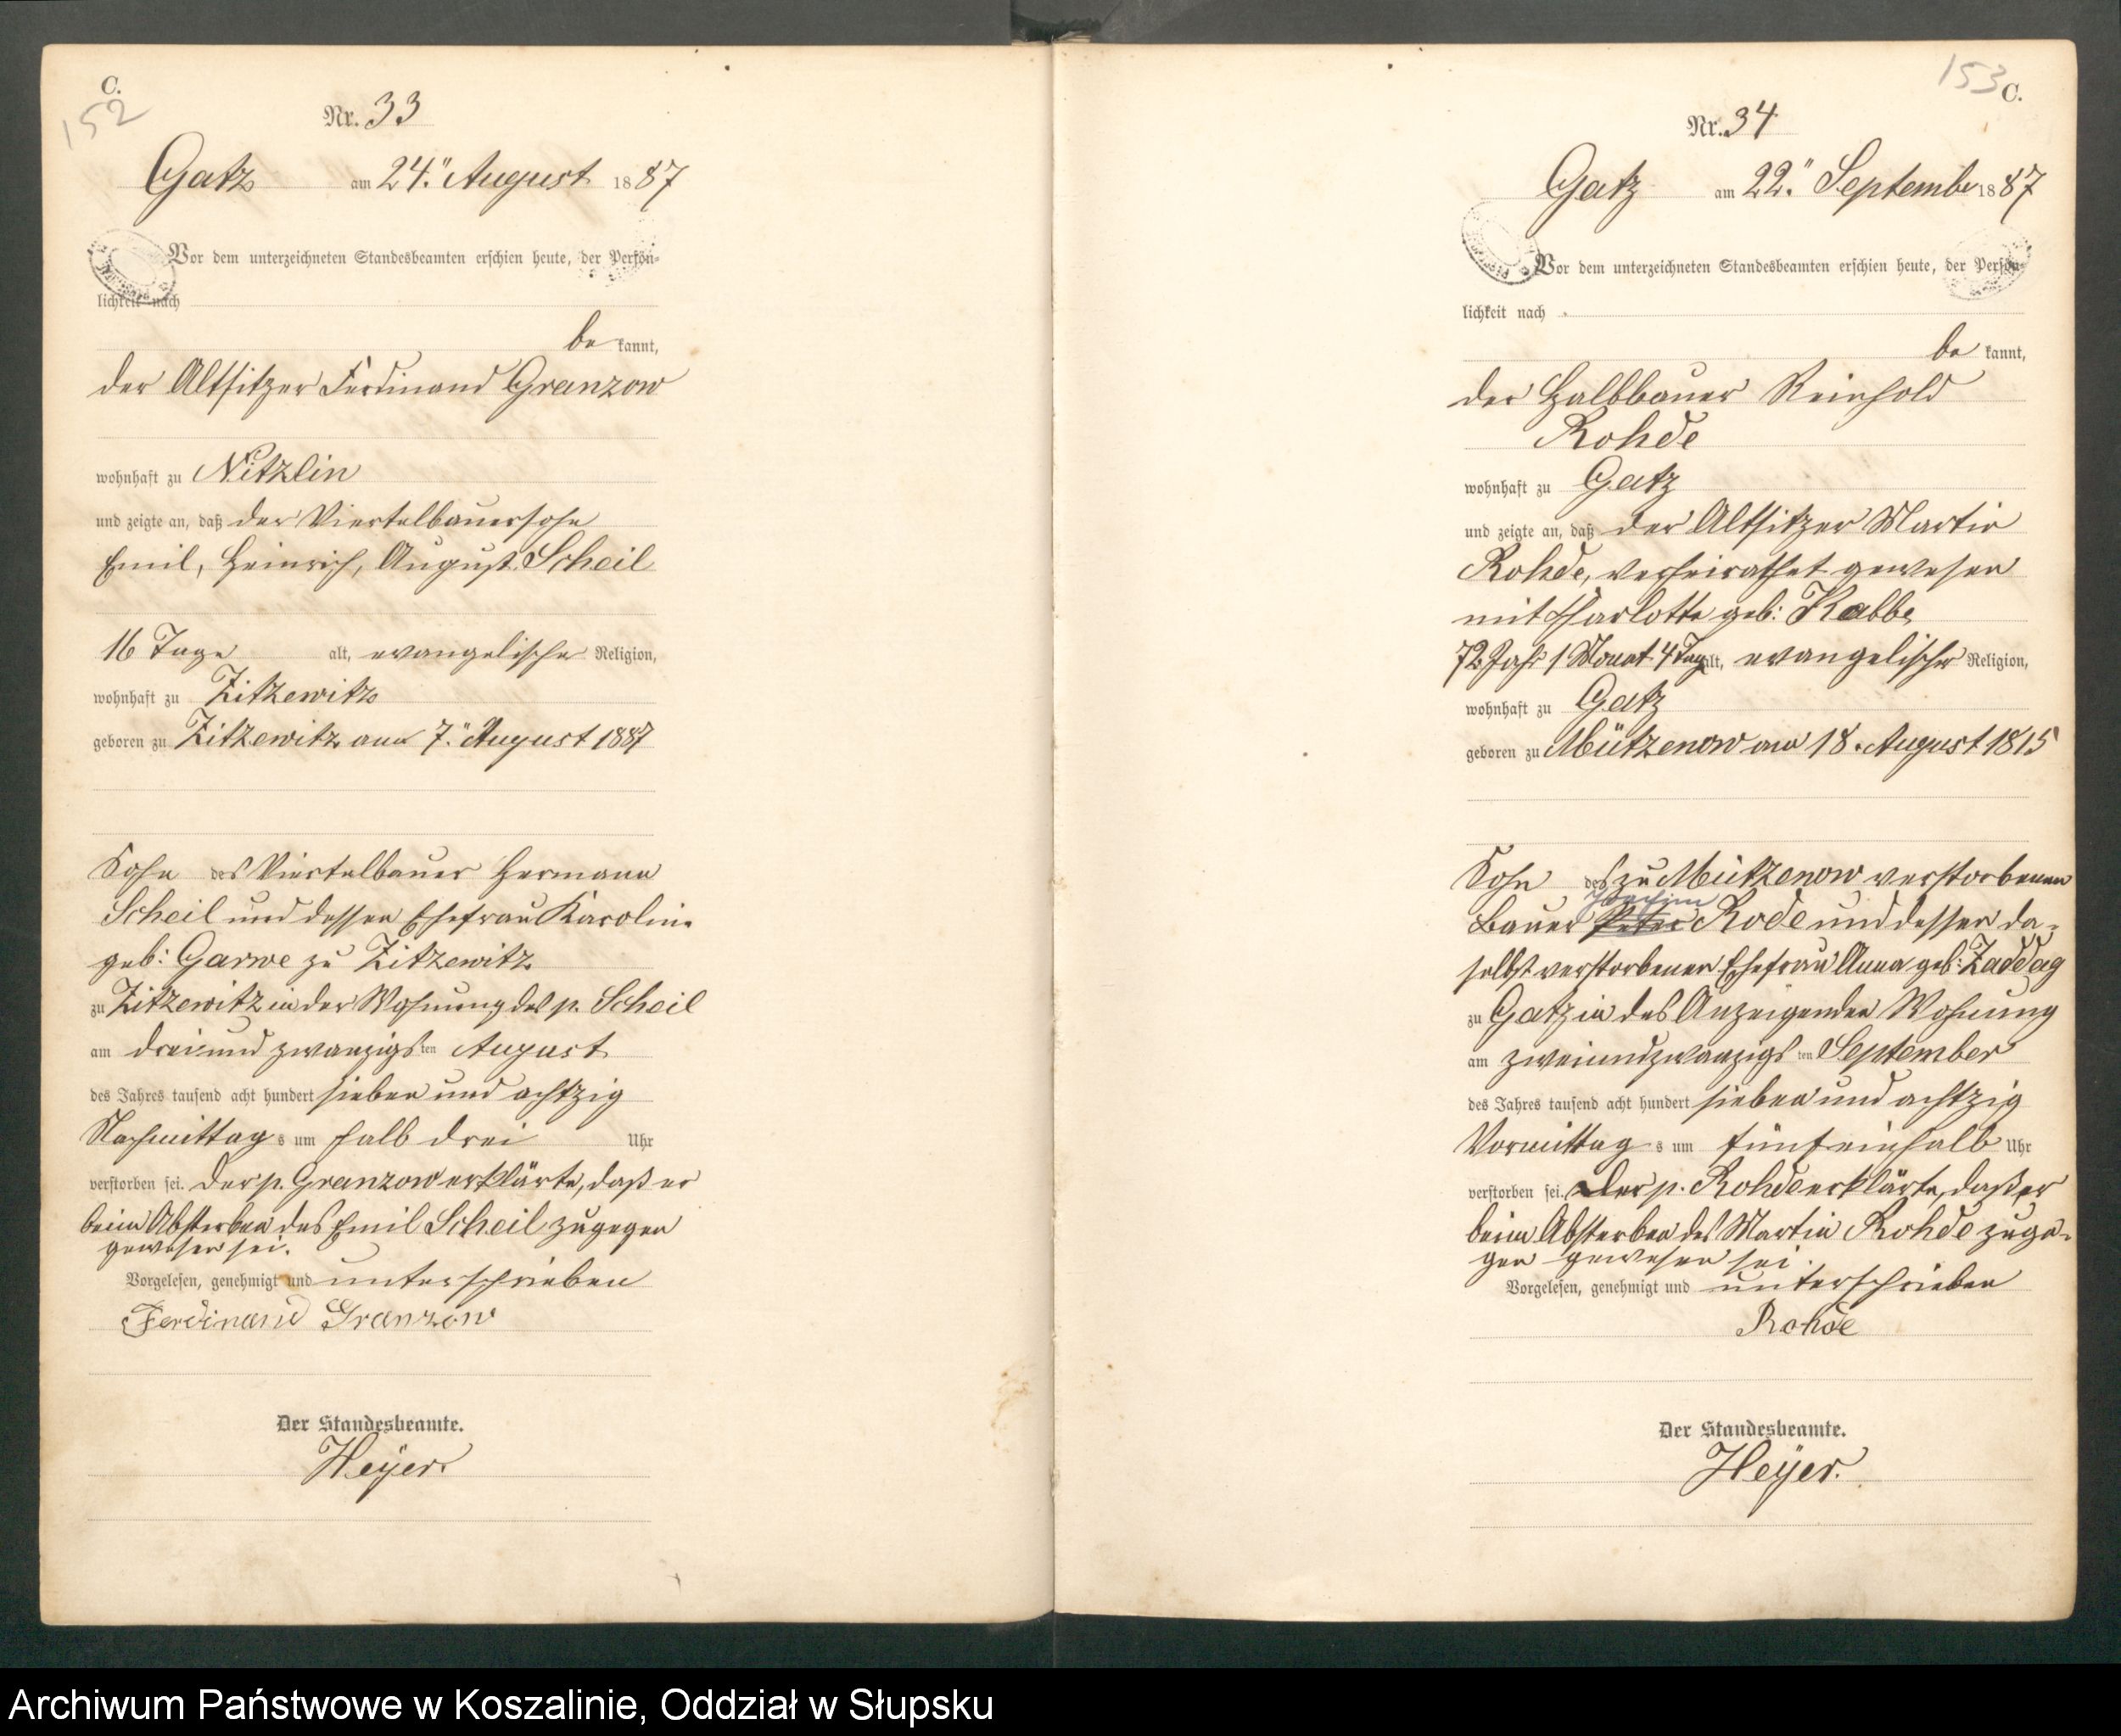 C.
152
Nr. 33
Gatz am 24." August 1887
Vor dem unterzeichneten Standesbeamten erschien heute, der Persön-
lichkeit nach
be kannt,
der Altsitzer Ferdinand Granzow
wohnhaft zu Nitzlin
und zeigte an, daß der Viertelbauersohn
Emil, Heinrich, August Scheil
16 Tage alt, evangelischer Religion,
wohnhaft zu Zitzewitz
geboren zu Zitzewitz am 7." August 1887
Sohn des Viertelbauer Hermann
Scheil und dessen Ehefrau Karoline
geb: Garwe zu Zitzewitz
zu Zitzewitz in der Wohnung des p. Scheil
am drei und zwanzigs ten August
des Jahres tausend acht hundert sieben und achtzig
Nachmittag s um halb drei Uhr
verstorben sei. Der p. Granzow erklärte, daß er
beim Absterben des Emil Scheil zugegen
gewesen sei.
Vorgelesen, genehmigt und unterschrieben
Ferdinand Granzow
Der Standesbeamte.
Heÿer
153
C.
Nr. 34
Gatz am 22." Septembe 1887
Vor dem unterzeichneten Standesbeamten erschien heute, der Persön-
lichkeit nach
be kannt,
der Halbbauer Reinhold
Rohde
wohnhaft zu Gatz
und zeigte an, daß der Altsitzer Martin
Rohde, verheirathet gewesen
mit Charlotte geb: Kabbe
72 Jahr 1 Monat 4 Tag alt, evangelischer Religion,
wohnhaft zu Gatz
geboren zu Mützenow am 18. August 1815
Sohn des zu Mützenow verstorbenen
Joachim
Bauer Peter Rode und dessen da-
selbst verstorbenen Ehefrau Anna geb: Zaddag
zu Gatz in des Anzeigenden Wohnung
am zweiundzwanzigs ten September
des Jahres tausend acht hundert sieben und achtzig
Vormittag s um fünfeinhalb Uhr
verstorben sei. Der p. Rohde erklärte, daß er
beim Absterben des Martin Rohde zuge-
gen gewesen sei.
Vorgelesen, genehmigt und unterschrieben
Rohde
Der Standesbeamte.
Heÿer.
Archiwum Państwowe w Koszalinie, Oddział w Słupsku